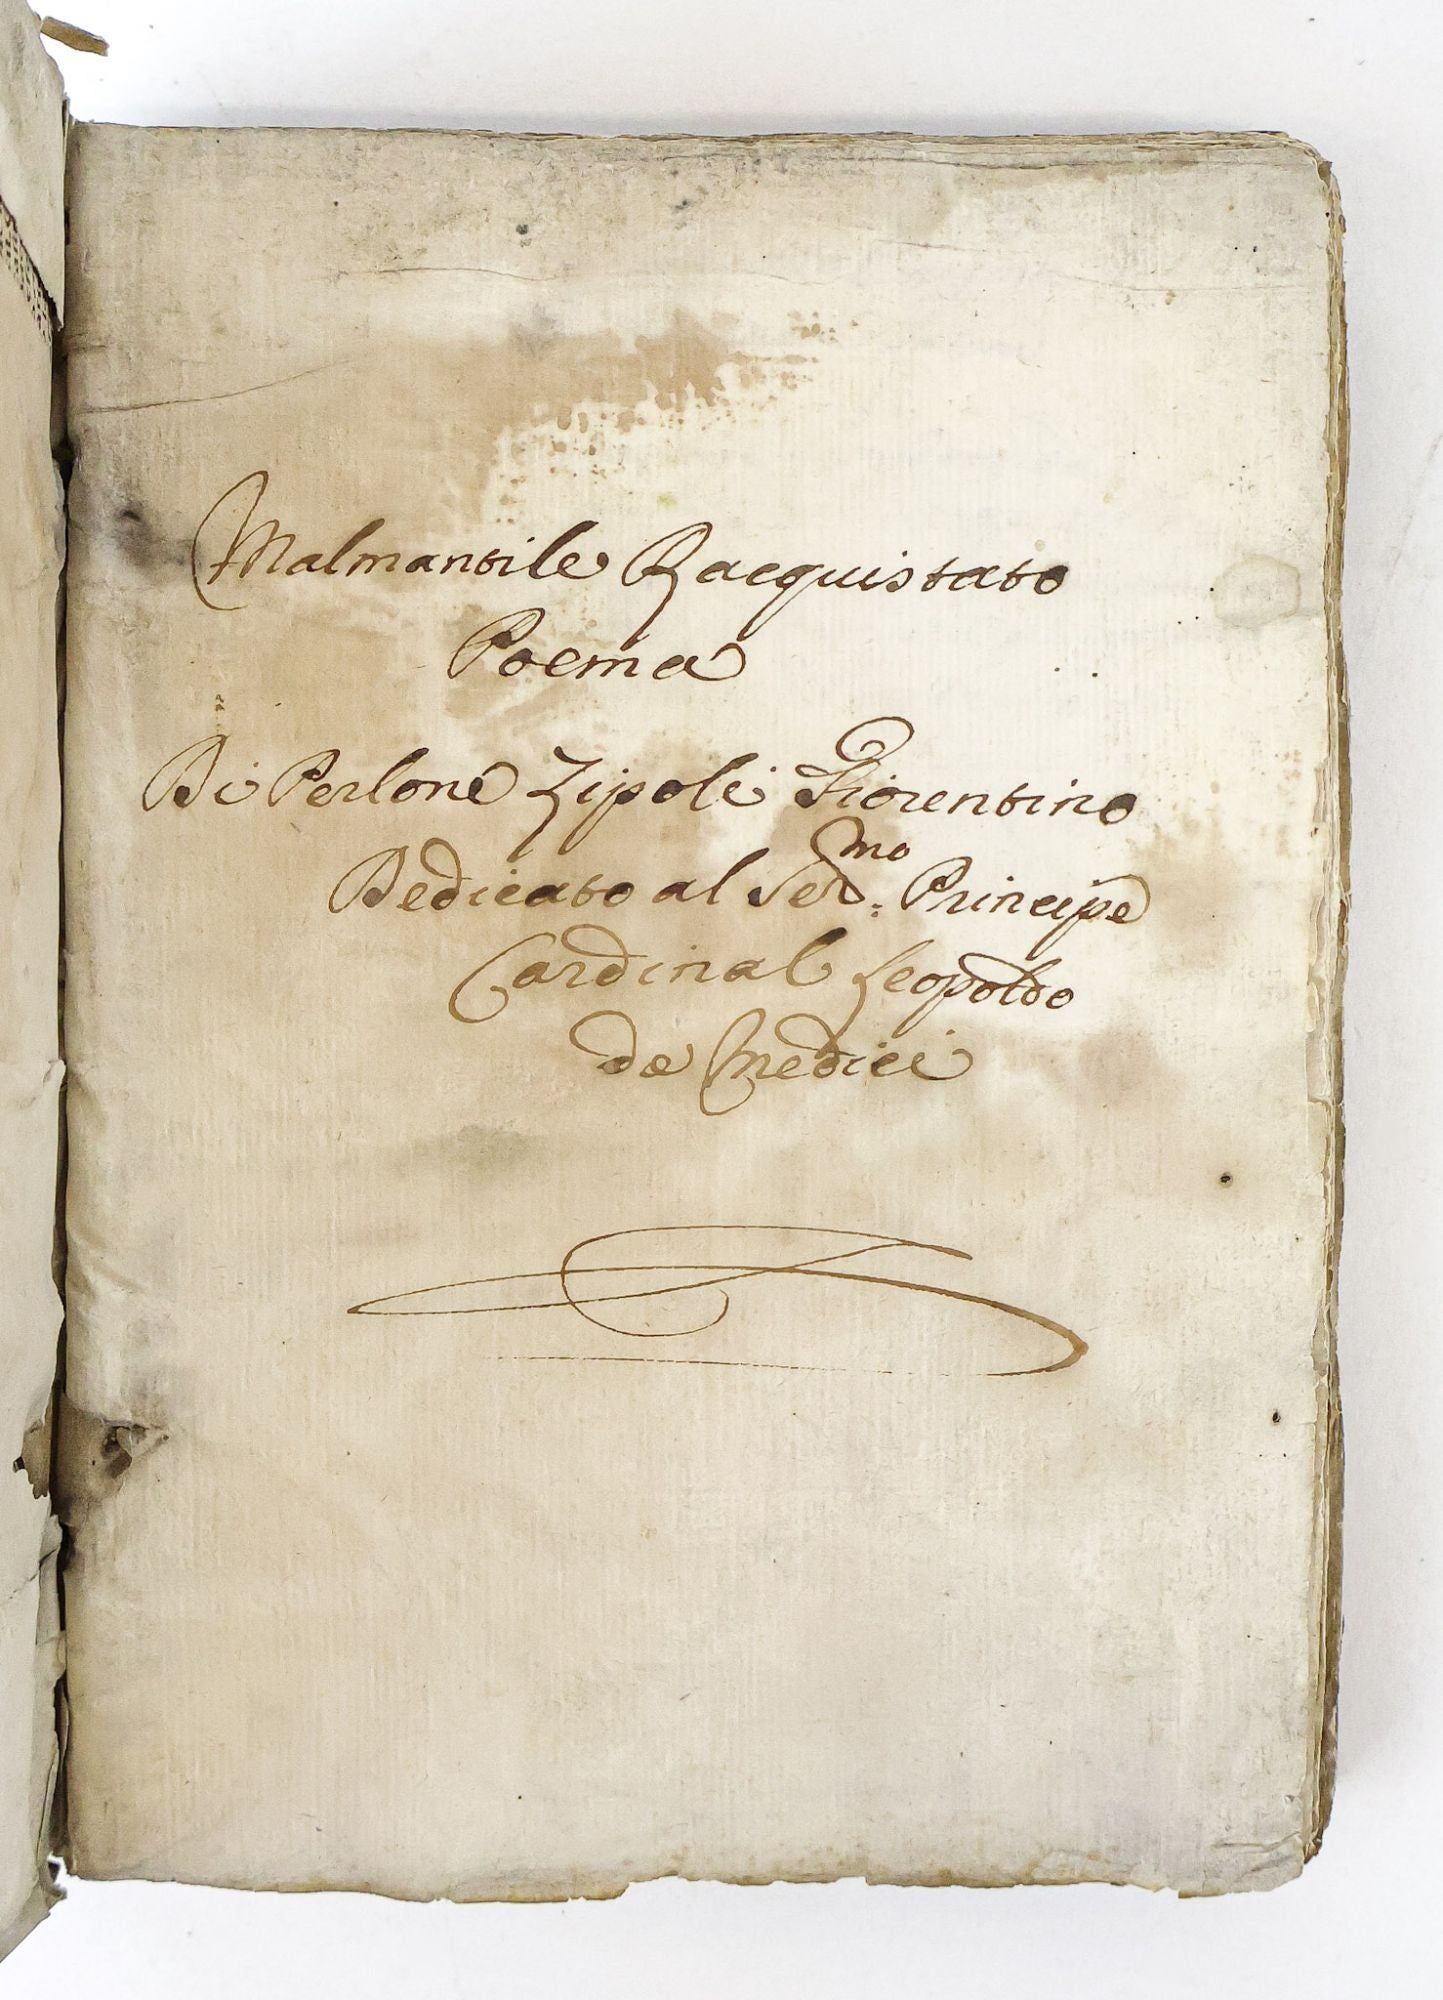 Malmantile Racquistato
Poema
Di Perlone Zipoli Fiorentino
Dedicato al Ser.mo Principe
Cardinal Leopoldo
de Medici